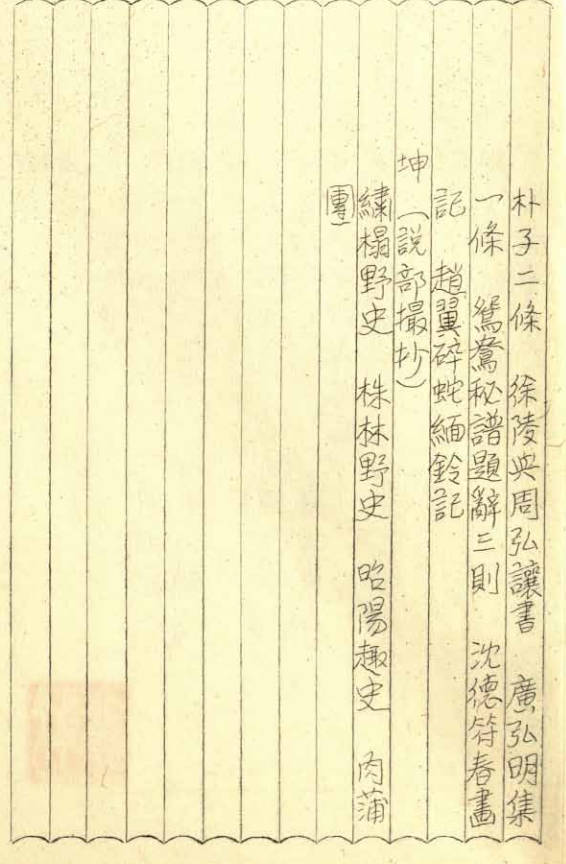 朴子二條　徐陵與周弘讓書　廣弘明集
一條　鴛鴦秘譜題辭三則　沈德符春畫
記　趙翼碎蛇緬鈴記
坤（說部撮抄）
繡榻野史　株林野史　昭陽趣史　肉蒲
團